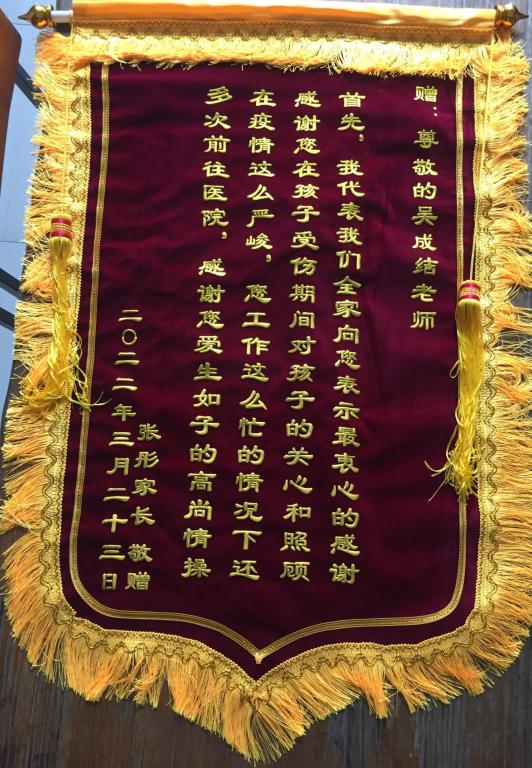 赠：尊敬的吴成结老师
首先，我代表我们全家向您表示最衷心的感谢
感谢您在孩子受伤期间对孩子的关心和照顾
在疫情这么严峻，您工作这么忙的情况下还
多次前往医院，感谢您爱生如子的高尚情操
张彤家长 敬赠
二〇二二年三月二十三日